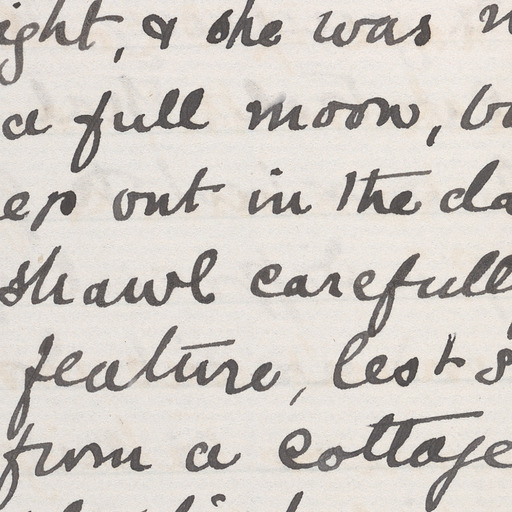 ight, & she was
a full moon, b
ep out in the da
shawl carefull
feature, lest s
from a cottage